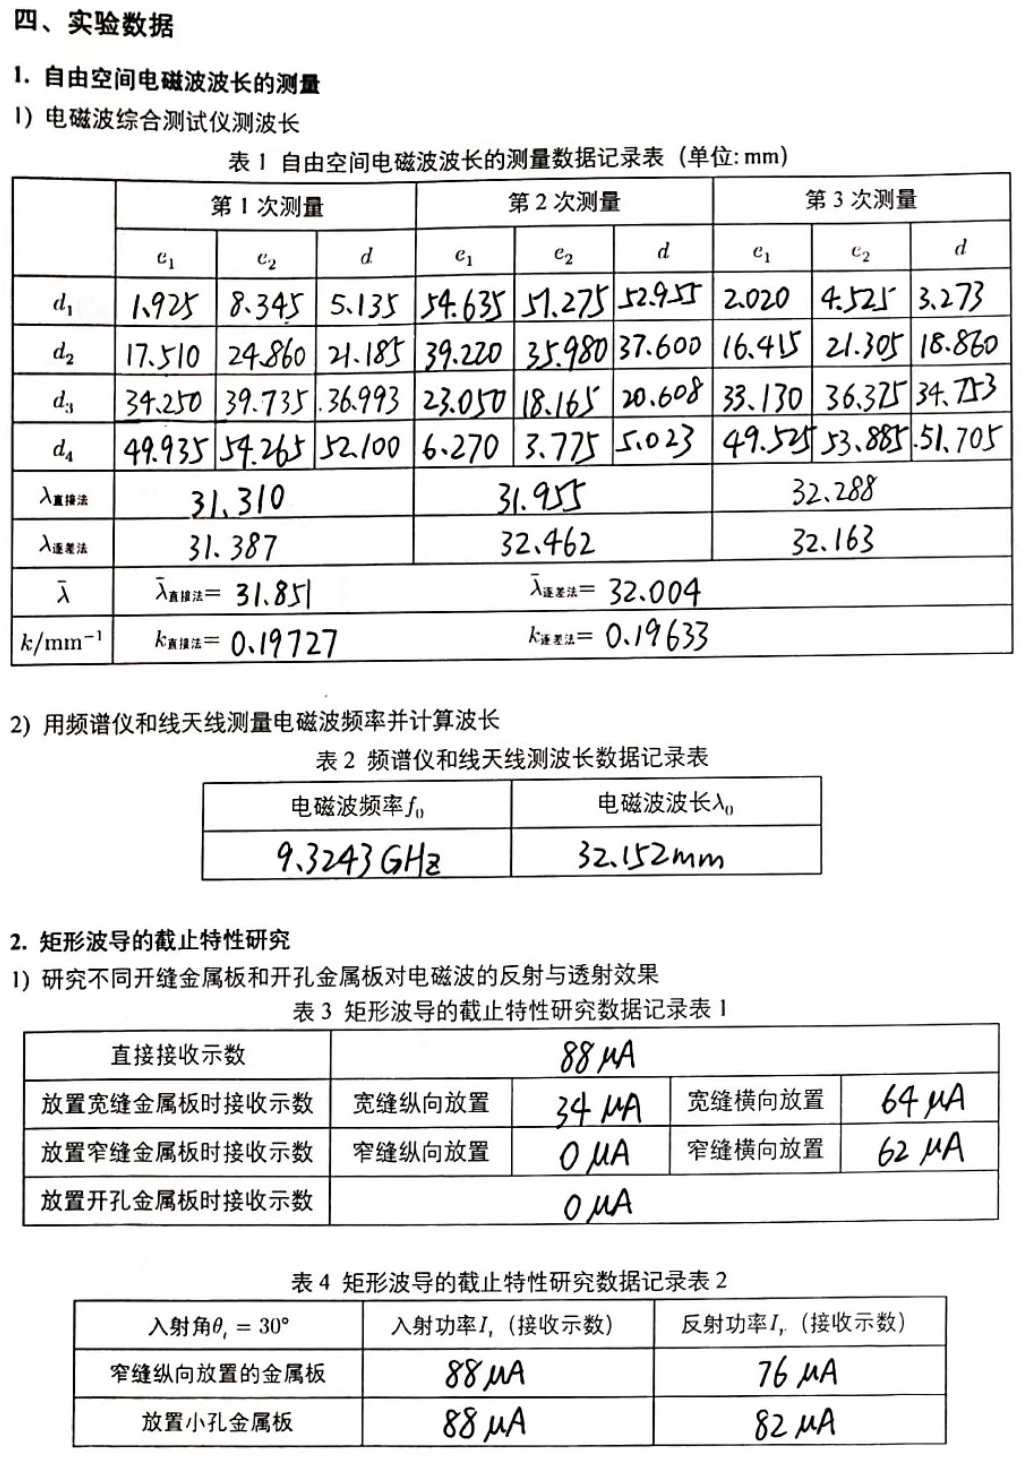 四、实验数据
1. 自由空间电磁波波长的测量
1) 电磁波综合测试仪测波长
表 1 自由空间电磁波波长的测量数据记录表 (单位: mm)
第 1 次测量 第 2 次测量 第 3 次测量
e₁ e₂ d e₁ e₂ d e₁ e₂ d
d₁ 1.925 8.345 5.135 54.635 51.275 52.955 2.020 4.525 3.273
d₂ 17.510 24.860 21.185 39.220 35.980 37.600 16.415 21.305 18.860
d₃ 34.250 39.735 36.993 23.050 18.165 20.608 33.130 36.375 34.753
d₄ 49.935 54.265 52.100 6.270 3.775 5.023 49.525 53.885 51.705
λ直接法 31.310 31.955 32.288
λ逐差法 31.387 32.462 32.163
λ̄ λ̄直接法= 31.851 λ̄逐差法= 32.004
k/mm⁻¹ k直接法= 0.19727 k逐差法= 0.19633
2) 用频谱仪和线天线测量电磁波频率并计算波长
表 2 频谱仪和线天线测波长数据记录表
电磁波频率f₀ 电磁波波长λ₀
9.3243 GHz 32.152mm
2. 矩形波导的截止特性研究
1) 研究不同开缝金属板和开孔金属板对电磁波的反射与透射效果
表 3 矩形波导的截止特性研究数据记录表 1
直接接收示数 88 μA
放置宽缝金属板时接收示数 宽缝纵向放置 34 μA 宽缝横向放置 64 μA
放置窄缝金属板时接收示数 窄缝纵向放置 0 μA 窄缝横向放置 62 μA
放置开孔金属板时接收示数 0 μA
表 4 矩形波导的截止特性研究数据记录表 2
入射角θᵢ = 30° 入射功率Iᵢ (接收示数) 反射功率Iᵣ (接收示数)
窄缝纵向放置的金属板 88 μA 76 μA
放置小孔金属板 88 μA 82 μA